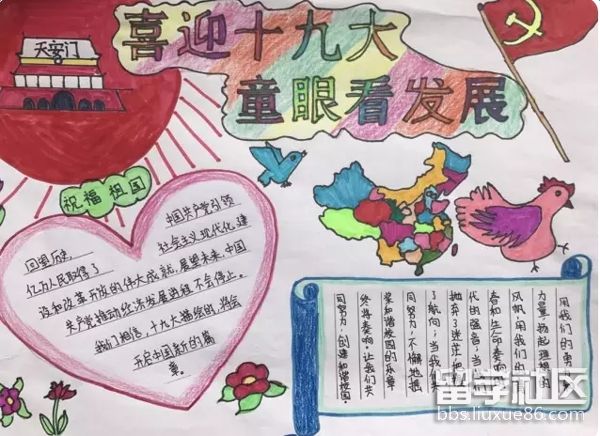 天安门
喜迎十九大
童眼看发展
祝福祖国
中国共产党引领
回望历史, 社会主义现代化建
亿万人民取得了
设和改革开放的伟大成就,展望未来,中国
共产党推动经济发展进程不会停止。
我们相信,十九大描绘的,将会
开启中国新的篇
章。
用我们的勇
力量,扬起理想的
风帆,用我们的
春和生命奏响
代的强音;当我们
抛弃了迷茫和
了航向;当我们
同努力,不懈地
奖和谐校园的乐章
终将奏响。让我们共
同努力,创建和谐校园。
留学社区
bbs.liuxue86.com